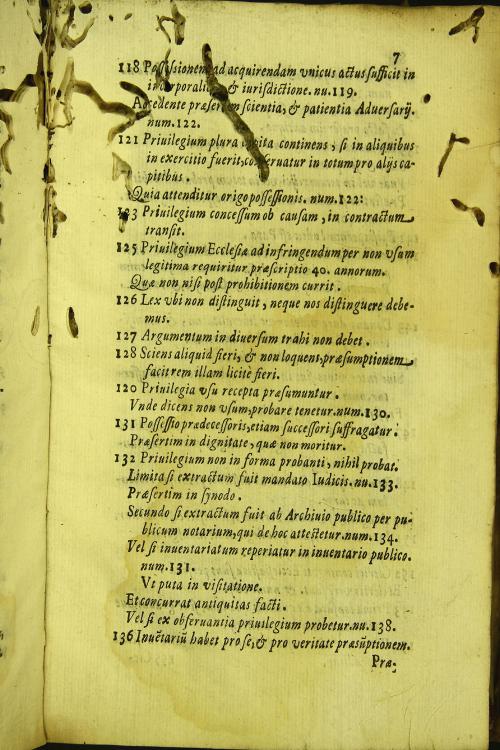 7
118 Possessionem ad acquirendam vnicus actus sufficit in
incorporalib. & iurisdictione. nu. 119.
Accedente præsertim scientia, & patientia Aduersarij.
num. 122.
121 Priuilegium plura capita continens, si in aliquibus
in exercitio fuerit, conseruatur in totum pro alijs ca-
pitibus.
Quia attenditur origo possessionis. num. 122:
123 Priuilegium concessum ob causam, in contractum
transit.
125 Priuilegium Ecclesiæ ad infringendum per non vsum
legitima requiritur præscriptio 40. annorum.
Quæ non nisi post prohibitionem currit.
126 Lex vbi non distinguit, neque nos distinguere debe-
mus.
127 Argumentum in diuersum trahi non debet.
128 Sciens aliquid fieri, & non loquens, præsumptionem
facit rem illam licitè fieri.
120 Priuilegia vsu recepta præsumuntur.
Vnde dicens non vsum, probare tenetur. num. 130.
131 Possessio prædecessoris, etiam successori suffragatur.
Præsertim in dignitate, quæ non moritur.
132 Priuilegium non in forma probanti, nihil probat.
Limita si extractum fuit mandato Iudicis. nu. 133.
Præsertim in synodo.
Secundo si extractum fuit ab Archiuio publico per pu-
blicum notarium, qui de hoc attestetur. num. 134.
Vel si inuentariatum reperiatur in inuentario publico.
num. 131.
Vt puta in visitatione.
Et concurrat antiquitas facti.
Vel si ex obseruantia priuilegium probetur. nu. 138.
136 Inuẽtariũ habet pro se, & pro veritate præsũptionem.
Præ-